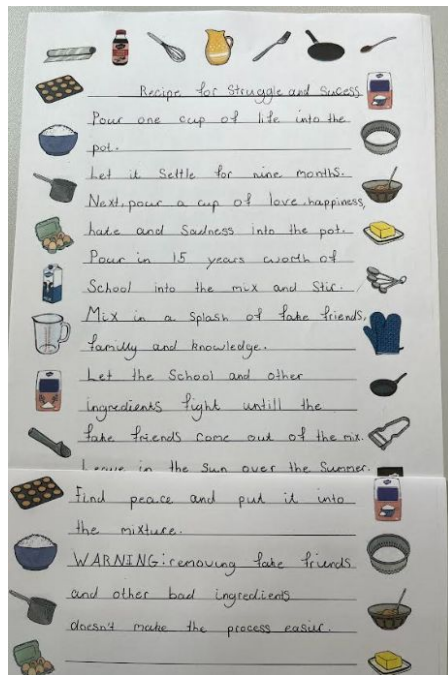 Recipe for Struggle and Sucess
Pour one cup of life into the
pot.
Let it Settle for nine months.
Next, pour a cup of love, happiness,
hate and Sadness into the pot.
Pour in 15 years worth of
School into the mix and Stir.
Mix in a splash of fake friends,
familly and knowledge.
Let the School and other
ingredients fight untill the
fake friends come out of the mix.
Leave in the Sun over the Summer.
Find peace and put it into
the mixture.
WARNING: removing fake friends
and other bad ingredients
doesn't make the process easier.